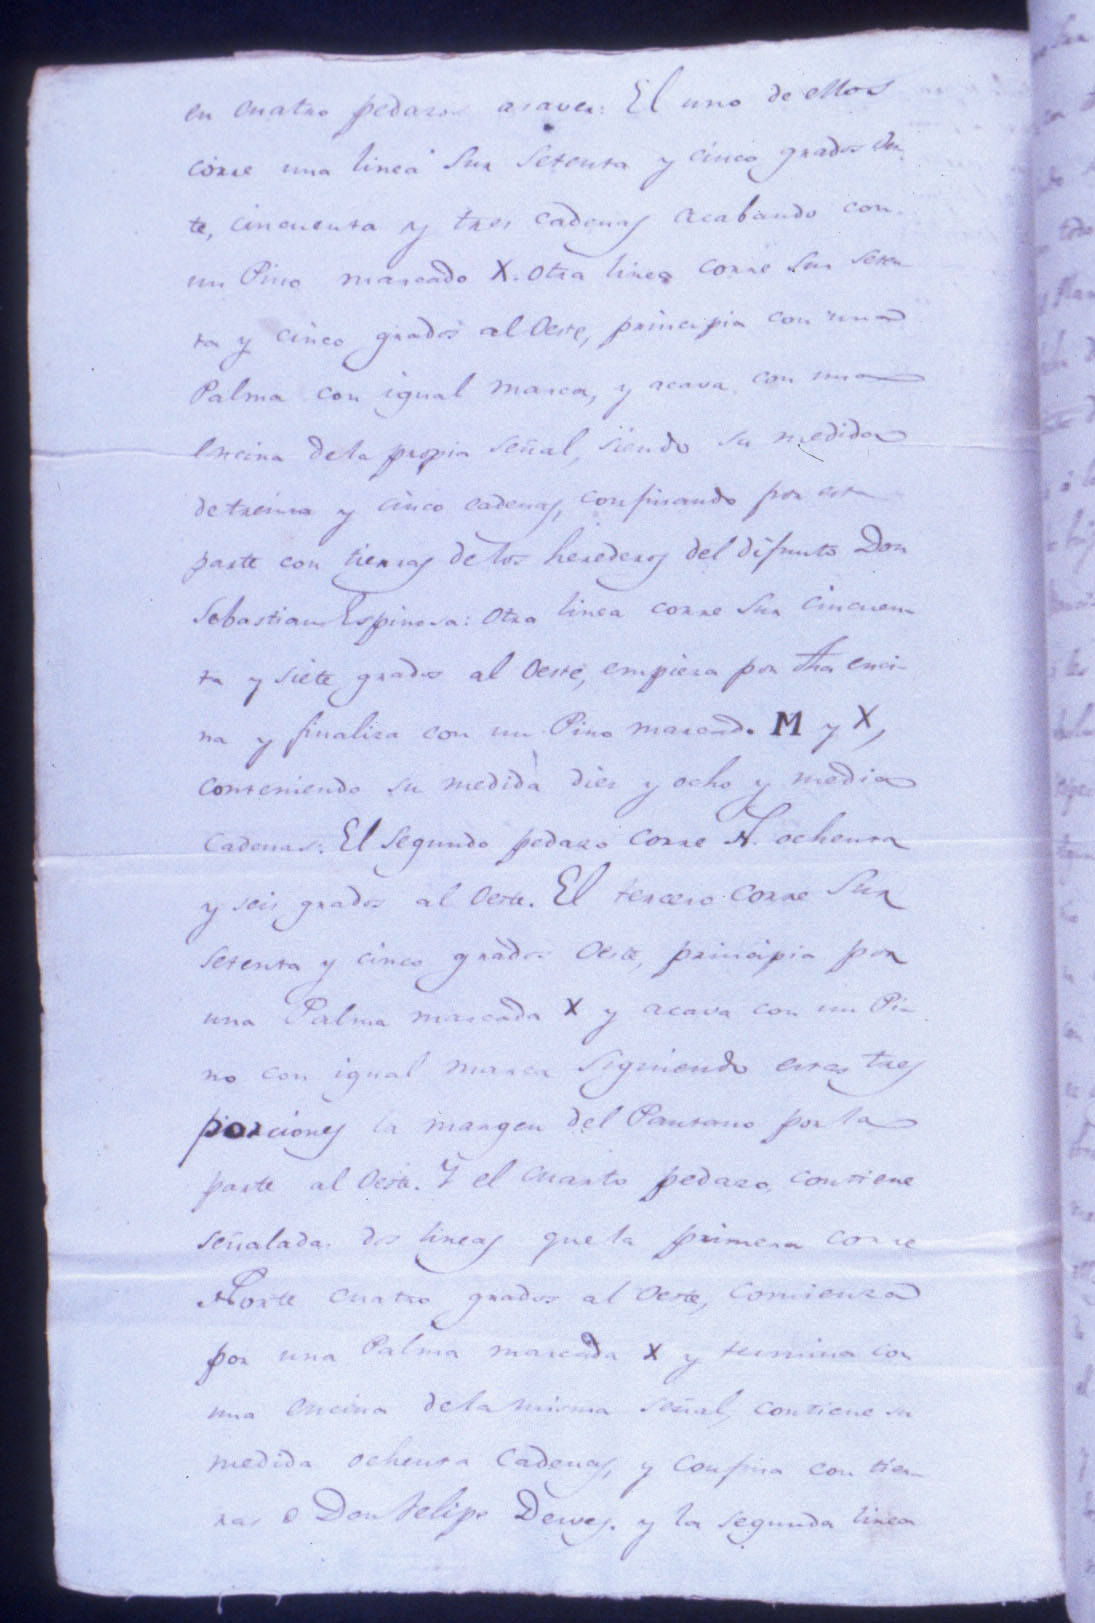 en cuatro pedazos asaver: El uno de ellos
corre una linea Sur Setenta y cinco grados Oes-
te, cincuenta y tres cadenas acabando con
un Pino marcado X. otra linea corre Sur Seten-
ta y cinco grados al Oeste, principia con una
Palma con igual marca, y acava con una
Encina dela propia señal, siendo su medida
de treinta y cinco cadenas, confinando por esta
parte con tierras de los herederos del difunto Don
Sebastian Espinosa: otra linea corre Sur cincuen-
ta y siete grados al Oeste, empieza por dha enci-
na y finaliza con un Pino marcado M y X,
conteniendo su medida dies y ocho y media
Cadenas. El segundo pedazo corre N. ochenta
y seis grados al Oeste. El tercero corre Sur
setenta y cinco grados Oeste, principia por
una Palma marcada X y acava con un Pi-
no con igual marca siguiendo estas tres
porciones la margen del Pantano por la
parte al Oeste. Y el cuarto pedazo, contiene
señalada dos lineas que la primera corre
Norte cuatro grados al Oeste, comienza
por una Palma marcada X y termina con
una encina dela misma señal, contiene su
medida ochenta Cadenas, y confina con tier-
ras Don Felipe Dewes. y la segunda linea